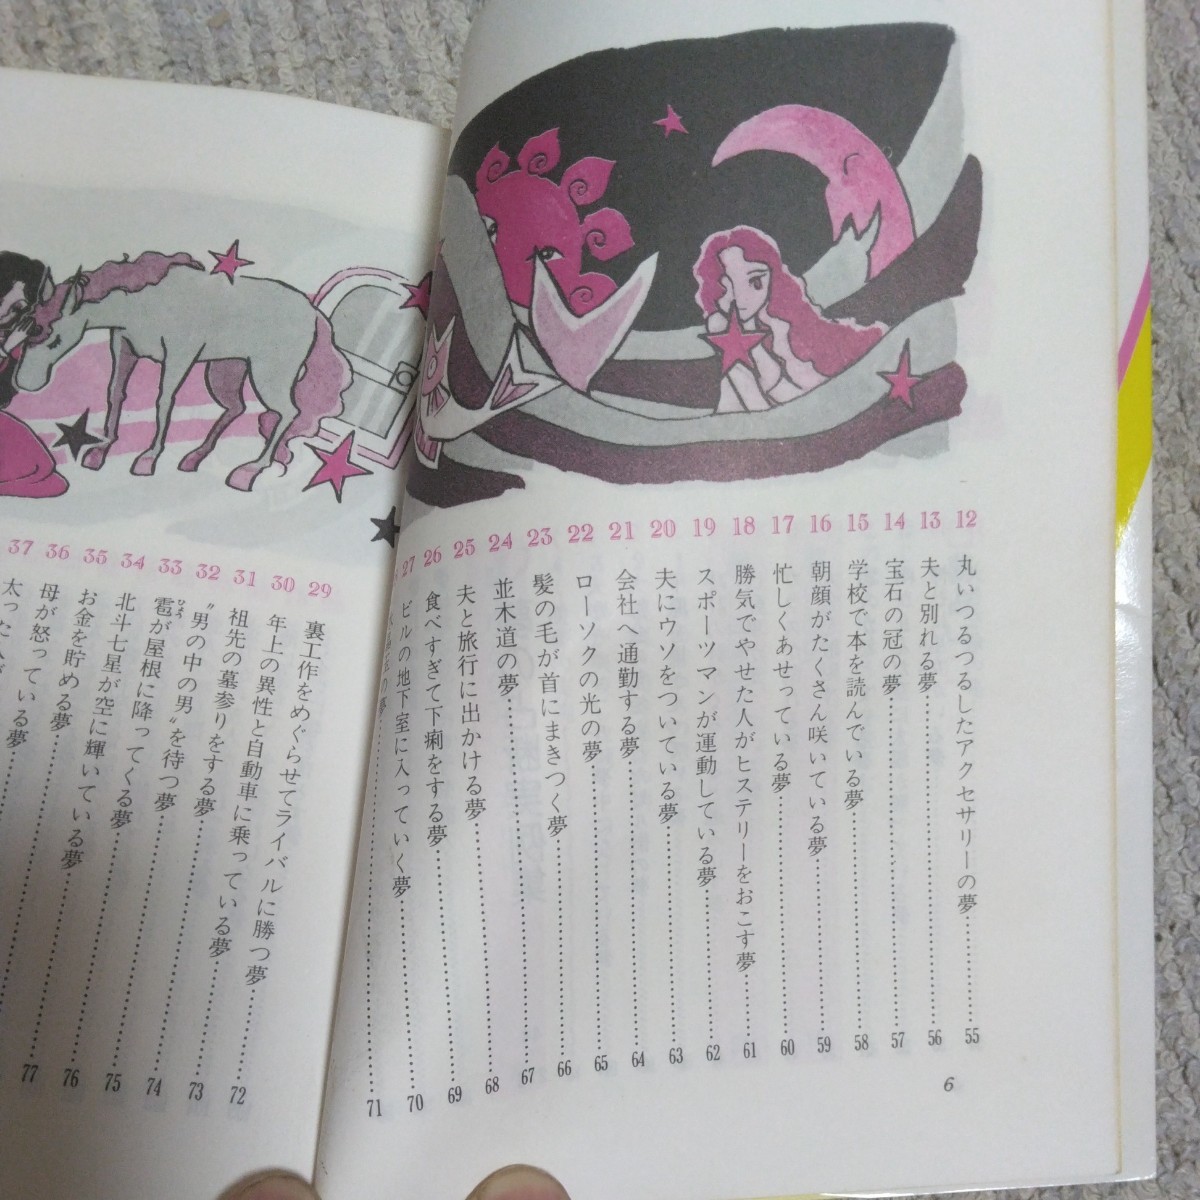 12 丸いつるつるしたアクセサリーの夢 …… 55
13 夫と別れる夢 …… 56
14 宝石の冠の夢 …… 57
15 学校で本を読んでいる夢 …… 58
16 朝顔がたくさん咲いている夢 …… 59
17 忙しくあせっている夢 …… 60
18 勝気でやせた人がヒステリーをおこす夢 …… 61
19 スポーツマンが運動している夢 …… 62
20 夫にウソをついている夢 …… 63
21 会社へ通勤する夢 …… 64
22 ローソクの光の夢 …… 65
23 髪の毛が首にまきつく夢 …… 66
24 並木道の夢 …… 67
25 夫と旅行に出かける夢 …… 68
26 食べすぎて下痢をする夢 …… 69
27 ビルの地下室に入っていく夢 …… 70
の夢 …… 71
6
29 裏工作をめぐらせてライバルに勝つ夢 …… 72
30 年上の異性と自動車に乗っている夢 …… 73
31 祖先の墓参りをする夢 …… 74
32 “男の中の男”を待つ夢 …… 75
33 雹が屋根に降ってくる夢 …… 76
ひょう
34 北斗七星が空に輝いている夢 …… 77
35 お金を貯める夢
36 母が怒っている夢
37 太った